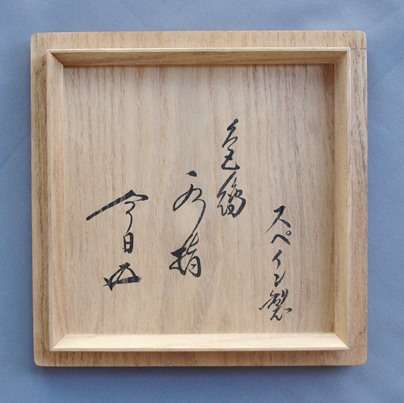 スペイン製
色鍋
水指
今日